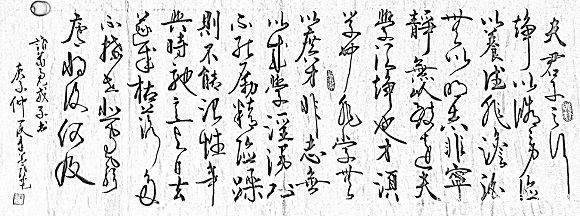 夫君子之行
静以修身儉
以養德非澹泊
無以明志非寧
靜無以致遠夫
學須静也才須
學也非學無
以廣才非志無
以成學淫漫則
不能勵精險躁
則不能冶性年
與時馳意與日去
遂成枯落多
不接世悲守窮
廬將復何及
諸葛亮誡子書
庚子仲